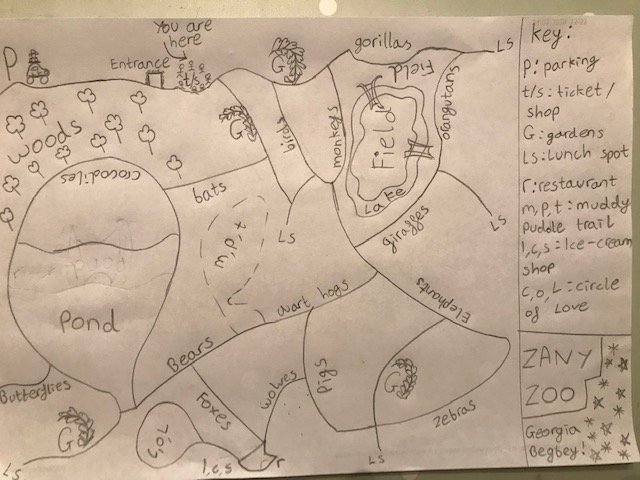 You are
here
gorillas
LS
P
Entrance
t/s
G
Field
orangutans
G
birds
monkeys
Field
woods
Crocodiles
bats
Lake
LS
LS
giraffes
m,p,t
Elephants
wart hogs
Pond
Bears
Pigs
Butterflies
Foxes
wolves
G
zebras
G
C,O,L
LS
l,c,s
r
LS
key:
P: parking
t/s: ticket/
shop
G: gardens
LS: Lunch spot
r: restaurant
m,p,t: muddy
Puddle trail
l,c,s: Ice-cream
shop
C,O,L: circle
of Love
ZANY
ZOO
Georgia
Begbey!